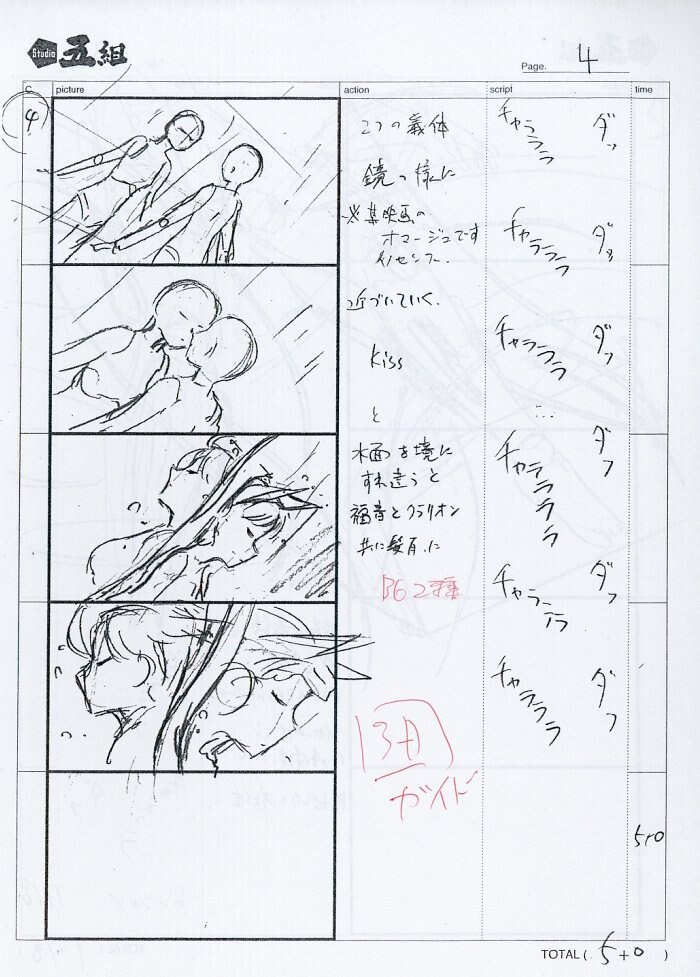 Studio 五組
Page. 4
c
picture
action
script
time
4
2つの義体
鏡の様に
※某映画の
オマージュです
イノセンス.
近づいていく.
kiss
と
水面を境に
すれ違うと
福音とクラリオン
共に髪有に
BG2種
ガイド
チャラララ
ダッ
チャラララ
ダッ
チャラララ
ダッ
...
チャララララ
ダッ
チャラララ
ダッ
チャラララ
ダッ
5+0
TOTAL ( 5+0 )